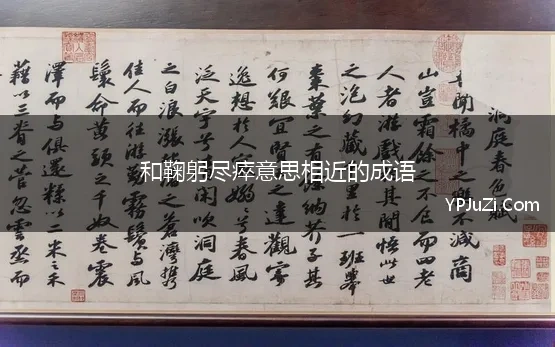 洞庭春色賦
聞橘中之樂不減商
山豈霜餘之不食而四老
人者游戲其間悟此世
之泡幻藏里於一班舉
棗葉之有納芥子其
何艱宜賢之達觀寄
逸想於人嫋兮春風
泛天宇兮閑吹洞庭
之白浪漲之蒼灣攜
佳人而往游霧鬢與風
鬟命黄頭之千奴卷震
澤而與俱還糅以二米之禾
藉以三脊之菅忽雲烝而
和鞠躬尽瘁意思相近的成语
YPJuZi.Com